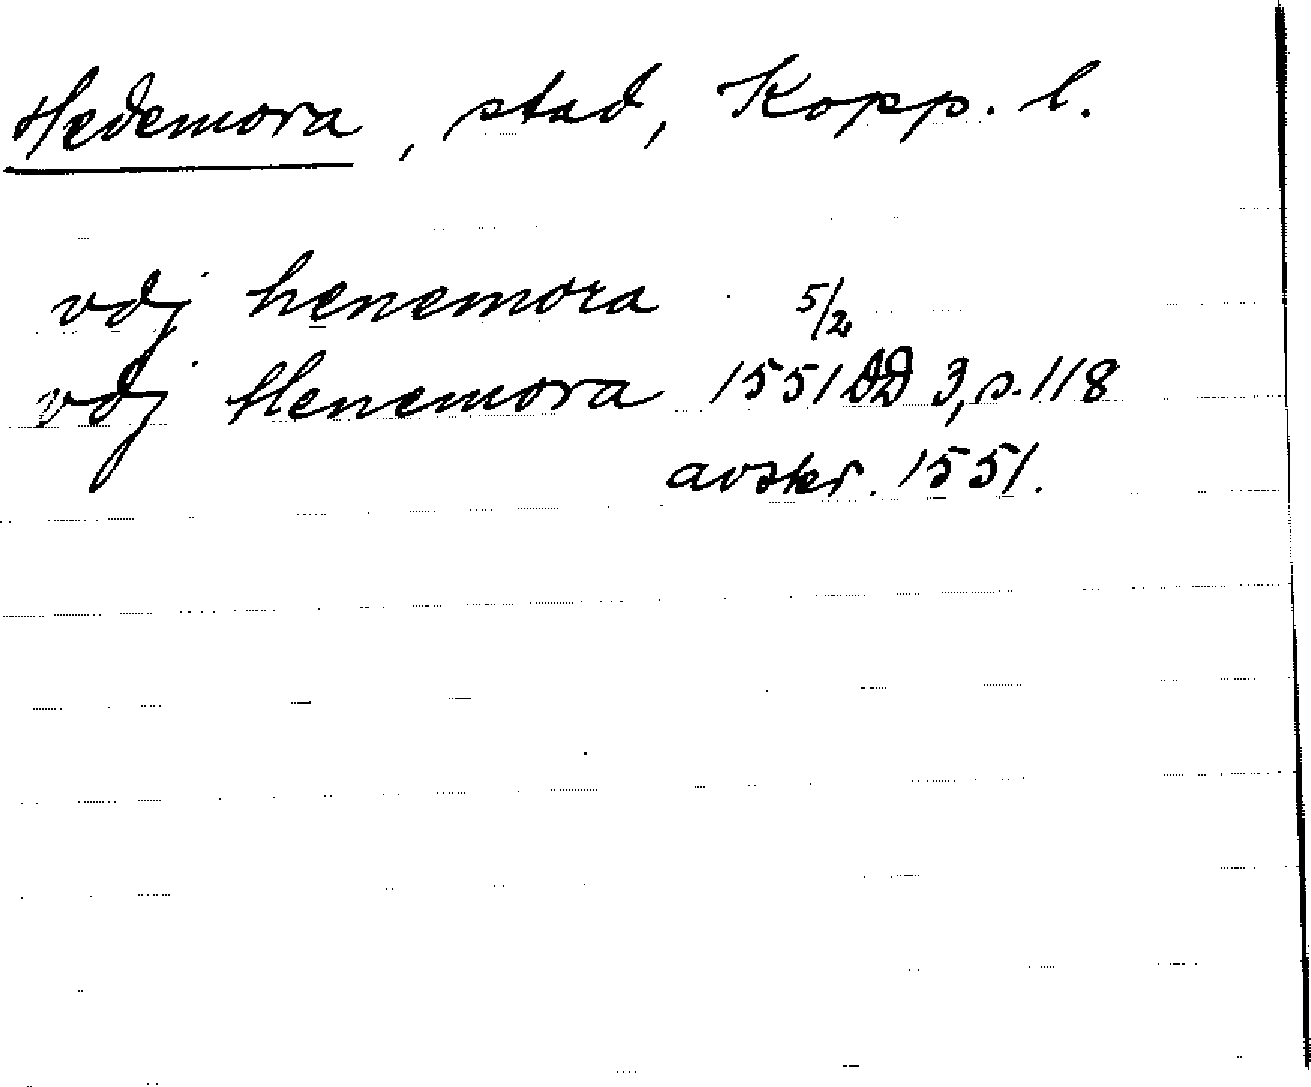 Hedemora, stad, Kopp. l.
vdj henemora 5/2
vdj Henemora 1551 DD 3, s. 118
avskr. 1551.